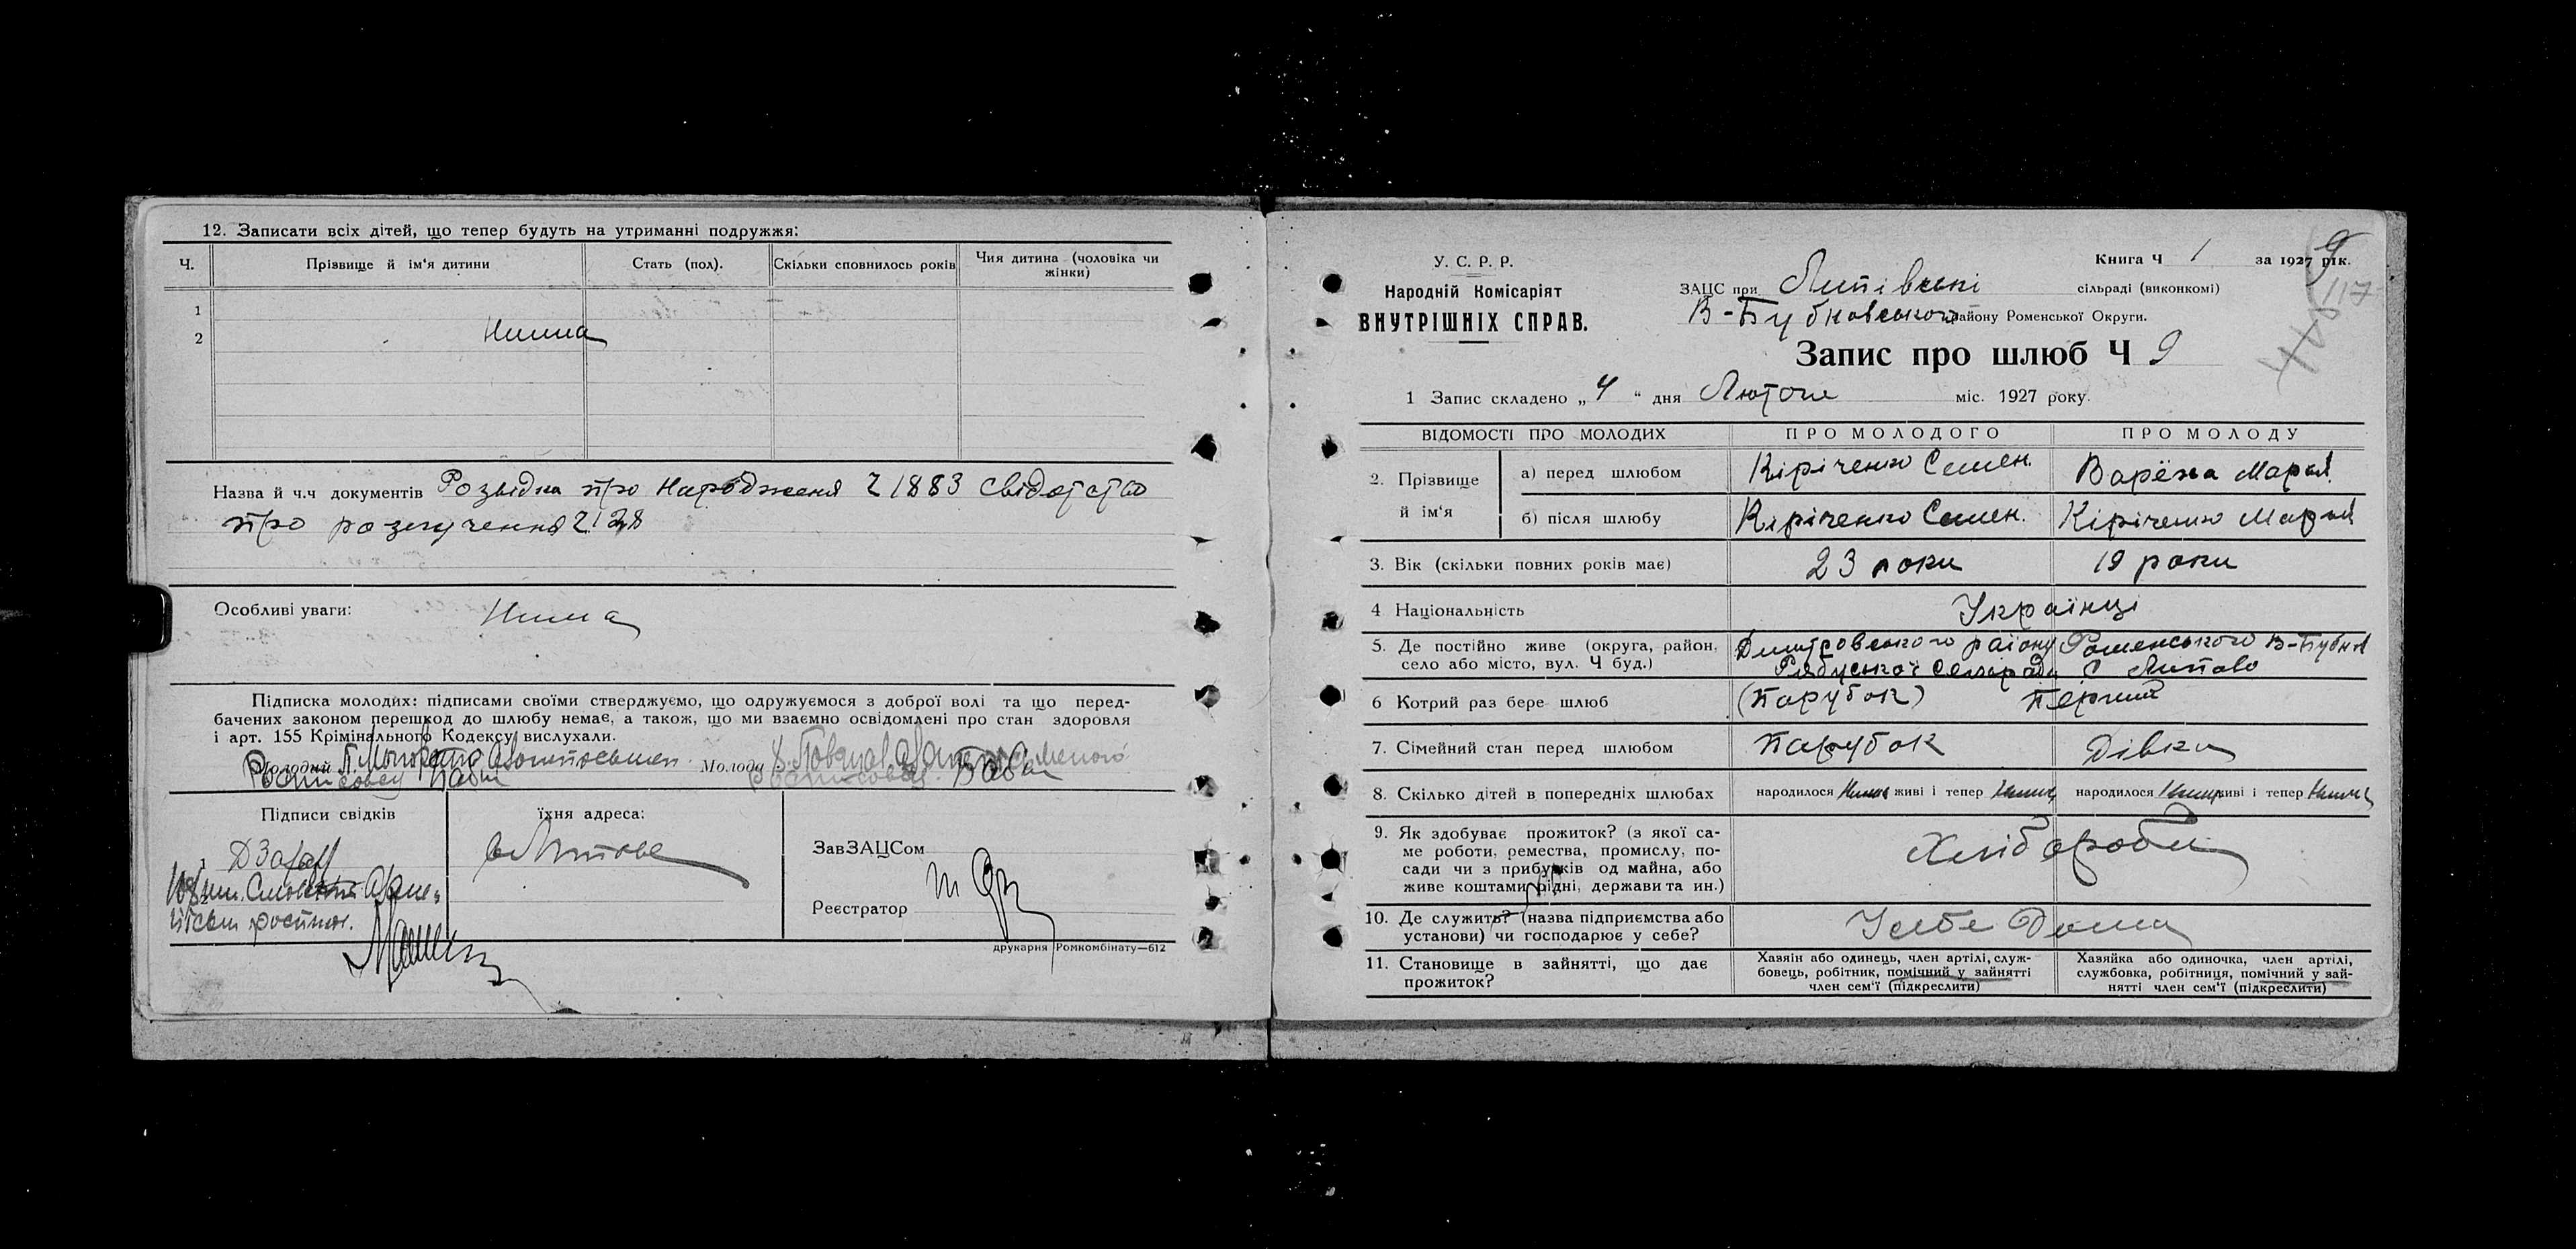 12. Записати всіх дітей, що тепер будуть на утриманні подружжя:
Ч. Прізвище й ім'я дитини Стать (пол). Скільки сповнилось років Чия дитина (чоловіка чи жінки)
1
2 Нима
Назва й ч.ч документів Розвідка про Народження Ч 1883 свідотство
про розлучення Ч 128
Особливі уваги: Нима
Підписка молодих: підписами своїми стверджуємо, що одружуємося з доброї волі та що перед-
бачених законом перешкод до шлюбу немає, а також, що ми взаємно освідомлені про стан здоровля
і арт. 155 Крімінального Кодексу вислухали.
Молодий Молода
Підписи свідків їхня адреса:
с Липове
ЗавЗАЦСом
Реєстратор
друкарня Ромкомбінату—612
У. С. Р. Р.
Народній Комісаріят
ВНУТРІШНІХ СПРАВ.
Книга Ч 1 за 1927 рік.
9
117
ЗАЦС при Липівські сільраді (виконкомі)
В-Бубновського району Роменської Округи.
Запис про шлюб Ч 9
1 Запис складено „4" дня Лютого міс. 1927 року.
ВІДОМОСТІ ПРО МОЛОДИХ ПРО МОЛОДОГО ПРО МОЛОДУ
2. Прізвище й ім'я
а) перед шлюбом Кіріченко Семен. Варёха Марья
б) після шлюбу Кіріченко Семен. Кіріченко Марья
3. Вік (скільки повних років має) 23 роки 19 роки
4 Національність Українці
5. Де постійно живе (округа, район, Дмитровського району Роменського В-Бубнов
село або місто, вул. Ч буд.) Сельради С Липово
6 Котрий раз бере шлюб (Парубок) Перший
7. Сімейний стан перед шлюбом Парубок Дівка
8. Скілько дітей в попередніх шлюбах народилося Нима живі і тепер Нима народилося Нима живі і тепер Нима
9. Як здобуває прожиток? (з якої са-
ме роботи, ремества, промислу, по-
сади чи з прибутків од майна, або
живе коштами рідні, держави та ин.) Хліборобы
10. Де служить? (назва підприємства або
установи) чи господарює у себе? Усебе Дома
11. Становище в зайнятті, що дає
прожиток?
Хазяін або одинець, член артілі, служ-
бовець, робітник, помічний у зайнятті
член сем'ї (підкреслити)
Хазяйка або одиночка, член артілі,
службовка, робітниця, помічний у зай-
нятті член сем'ї (підкреслити)